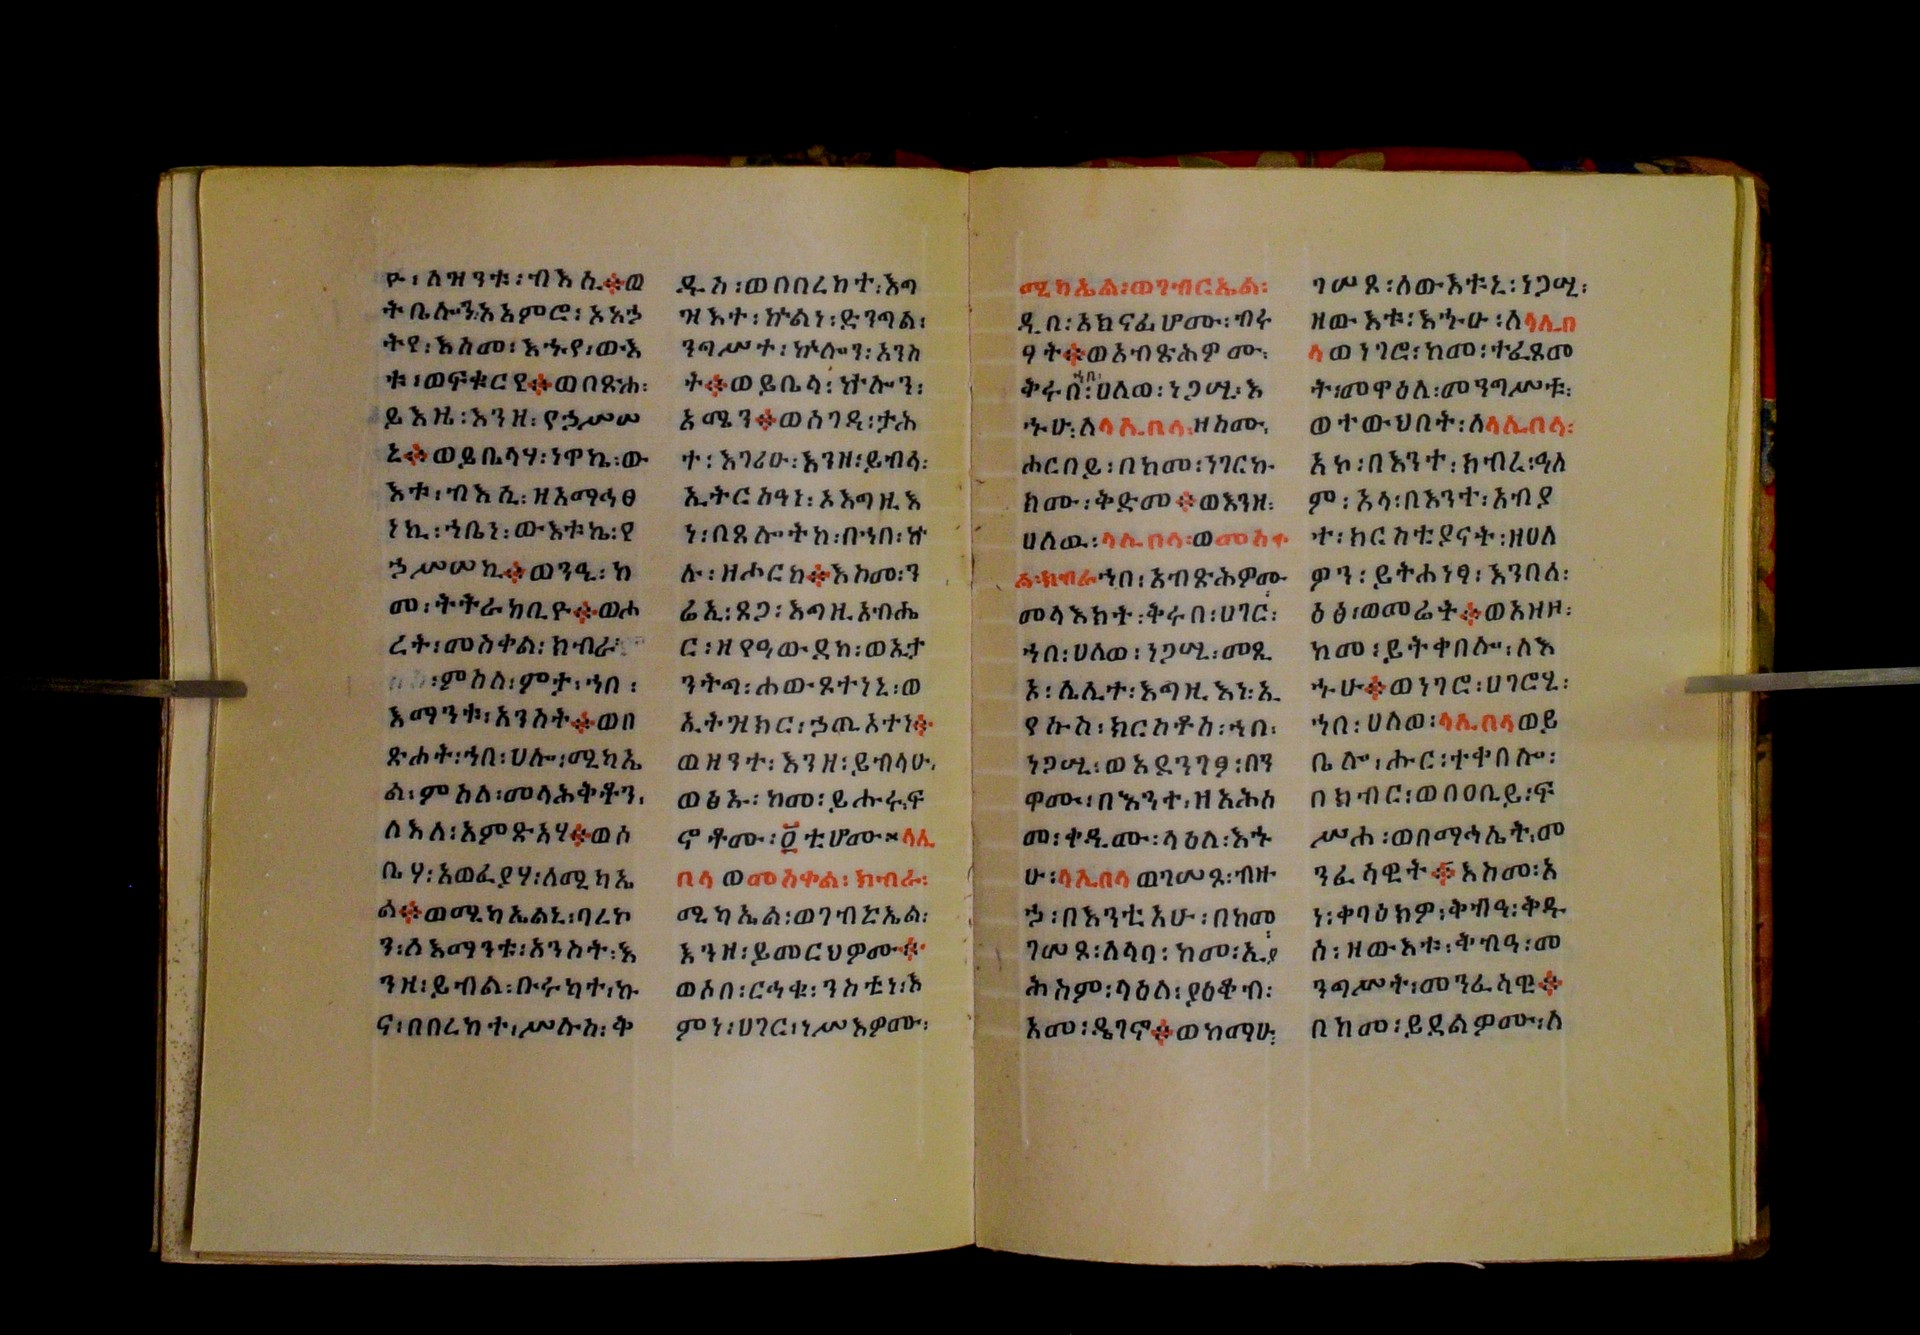 ዮ፡ ለዝንቱ፡ ብእሲ፨ወ
ትቤሎን፡አአምሮ፡ አአኃ
ትየ፡ እስመ፡ እኁየ፡ ውእ
ቱ፡ ወፍቁርየ፨ወበጽሐ፡
ይእዜ፡ እንዘ፡ የኃሥሥ
ኒ፨ወይቤላሃ፡ ነዋኬ፡ ው
እቱ፡ ብእሲ፡ ዘአማኅፀ
ነኪ፡ ኀቤነ፡ ውእቱኬ፡ የ
ኃሥሥኪ፨ወንዒ፡ ከ
መ፡ ትትራከቢዮ፨ወሖ
ረት፡ መስቀል፡ ክብራ፡
ምስለ፡ ምታ፡ ኀበ፡
እማንቱ፡ አንስት፨ወበ
ጽሐት፡ ኀበ፡ ሀሎ፡ ሚካኤ
ል፡ ምስለ፡ መላሕቅቶን፡
ለእለ፡ አምጽአሃ፨ወሰ
ቤሃ፡ አወፈያሃ፡ ለሚካኤ
ል፨ወሚካኤልኒ፡ ባረኮ
ን፡ ለእማንቱ፡ አንስት፡ እ
ንዘ፡ ይብል፡ ቡራካተ፡ ኩ
ና፡ በበረከተ፡ ሥሉስ፡ ቅ
ዱስ፡ ወበበረከተ፡ እግ
ዝእተ፡ ኵልነ፡ ድንግል፡
ንግሥተ፡ ኵሎን፡ አንስ
ት፨ወይቤላ፡ ኵሎን፡
አሜን፨ወሰገዳ፡ ታሕ
ተ፡ እገሪሁ፡ እንዘ፡ ይብላ፡
ኢትርስዓነ፡ አእግዚእ
ነ፡ በጸሎትከ፡ በኀበ፡ ኵ
ሉ፡ ዘሖርከ፨እስመ፡ ን
ሬኢ፡ ጸጋ፡ እግዚአብሔ
ር፡ ዘየዓውደከ፡ ወኢታ
ንትግ፡ ሐውጾተነኒ፡ ወ
ኢትዝክር፡ ኃጢአተነ፨
ወዘንተ፡ እንዘ፡ ይብላሁ፡
ወፅኡ፡ ከመ፡ ይሑሩ፡ ፍ
ኖቶሙ፡ ፬ቲሆሙ፡ ላሊ
በላ ወመስቀል፡ ክብራ፡
ሚካኤል፡ ወገብርኤል፡
እንዘ፡ ይመርህዎሙ፨
ወሶበ፡ ርኅቁ፡ ንስቲነ፡ እ
ምነ፡ ሀገር፡ ነሥእዎሙ፡
ሚካኤል፡ ወገብርኤል፡
ዲበ፡ አክናፊሆሙ፡ ብሩ
ሃት፨ወአብጽሕዎሙ፡
ቅሩበ፡ ኀበ፡ ሀለወ፡ ነጋሢ፡ እ
ኁሁ፡ ለላሊበላ፡ ዘስሙ፡
ሐርበይ፡ በከመ፡ ነገርኩ
ክሙ፡ ቅድመ፨ወእንዘ፡
ሀለዉ፡ ላሊበላ፡ ወመስቀ
ል፡ ክብራ ኀበ፡ አብጽሕዎሙ
መላእክት፡ ቅሩበ፡ ሀገር፡
ኀበ፡ ሀለወ፡ ነጋሢ፡ መጺ
አ፡ ሌሊተ፡ እግዚእነ፡ ኢ
የሱስ፡ ክርስቶስ፡ ኀበ፡
ነጋሢ፡ ወአደንገፆ፡ በን
ዋሙ፡ በእንተ፡ ዘአሕሰ
መ፡ ቀዲሙ፡ ላዕለ፡ እኁ
ሁ፡ ላሊበላ ወገሠጾ፡ ብዙ
ኃ፡ በእንቲአሁ፡ በከመ
ገሠጾ፡ ለላባ፡ ከመ፡ ኢያ
ሕስም፡ ላዕለ፡ ያዕቆብ፡
አመ፡ ዴገኖ፨ወከማሁ፡
ገሠጾ፡ ለውእቱኒ፡ ነጋሢ፡
ዘውእቱ፡ እኁሁ፡ ለላሊበ
ላ ወነገሮ፡ ከመ፡ ተፈጸመ
ት፡ መዋዕለ፡ መንግሥቱ፡
ወተውህበት፡ ለላሊበላ፡
አኮ፡ በእንተ፡ ክብረ፡ ዓለ
ም፡ አላ፡ በእንተ፡ አብያ
ተ፡ ክርስቲያናት፡ ዘሀለ
ዎን፡ ይትሐነፃ፡ እንበለ፡
ዕፅ፡ ወመሬት፨ወአዘዞ፡
ከመ፡ ይትቀበሎ፡ ለእ
ኁሁ፨ወነገሮ፡ ሀገሮሂ፡
ኀበ፡ ሀለወ፡ ላሊበላ ወይ
ቤሎ፡ ሑር፡ ተቀበሎ፡
በክብር፡ ወበዐቢይ፡ ፍ
ሥሐ፡ ወበማኅሌት፡ መ
ንፈሳዊት፨እስመ፡ አ
ነ፡ ቀባዕክዎ፡ ቅብዓ፡ ቅዱ
ሰ፡ ዘውእቱ፡ ቅብዓ፡ መ
ንግሥት፡ መንፈሳዊ፨
በከመ፡ ይደልዎሙ፡ ለ